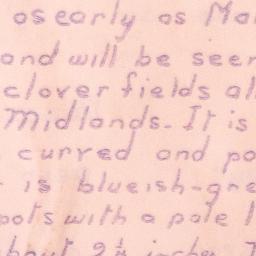 as early as Ma
and will be seen
clover fields al
Midlands. It is
curved and po
is blueish-gre
pots with a pale l
bout 2½ inches